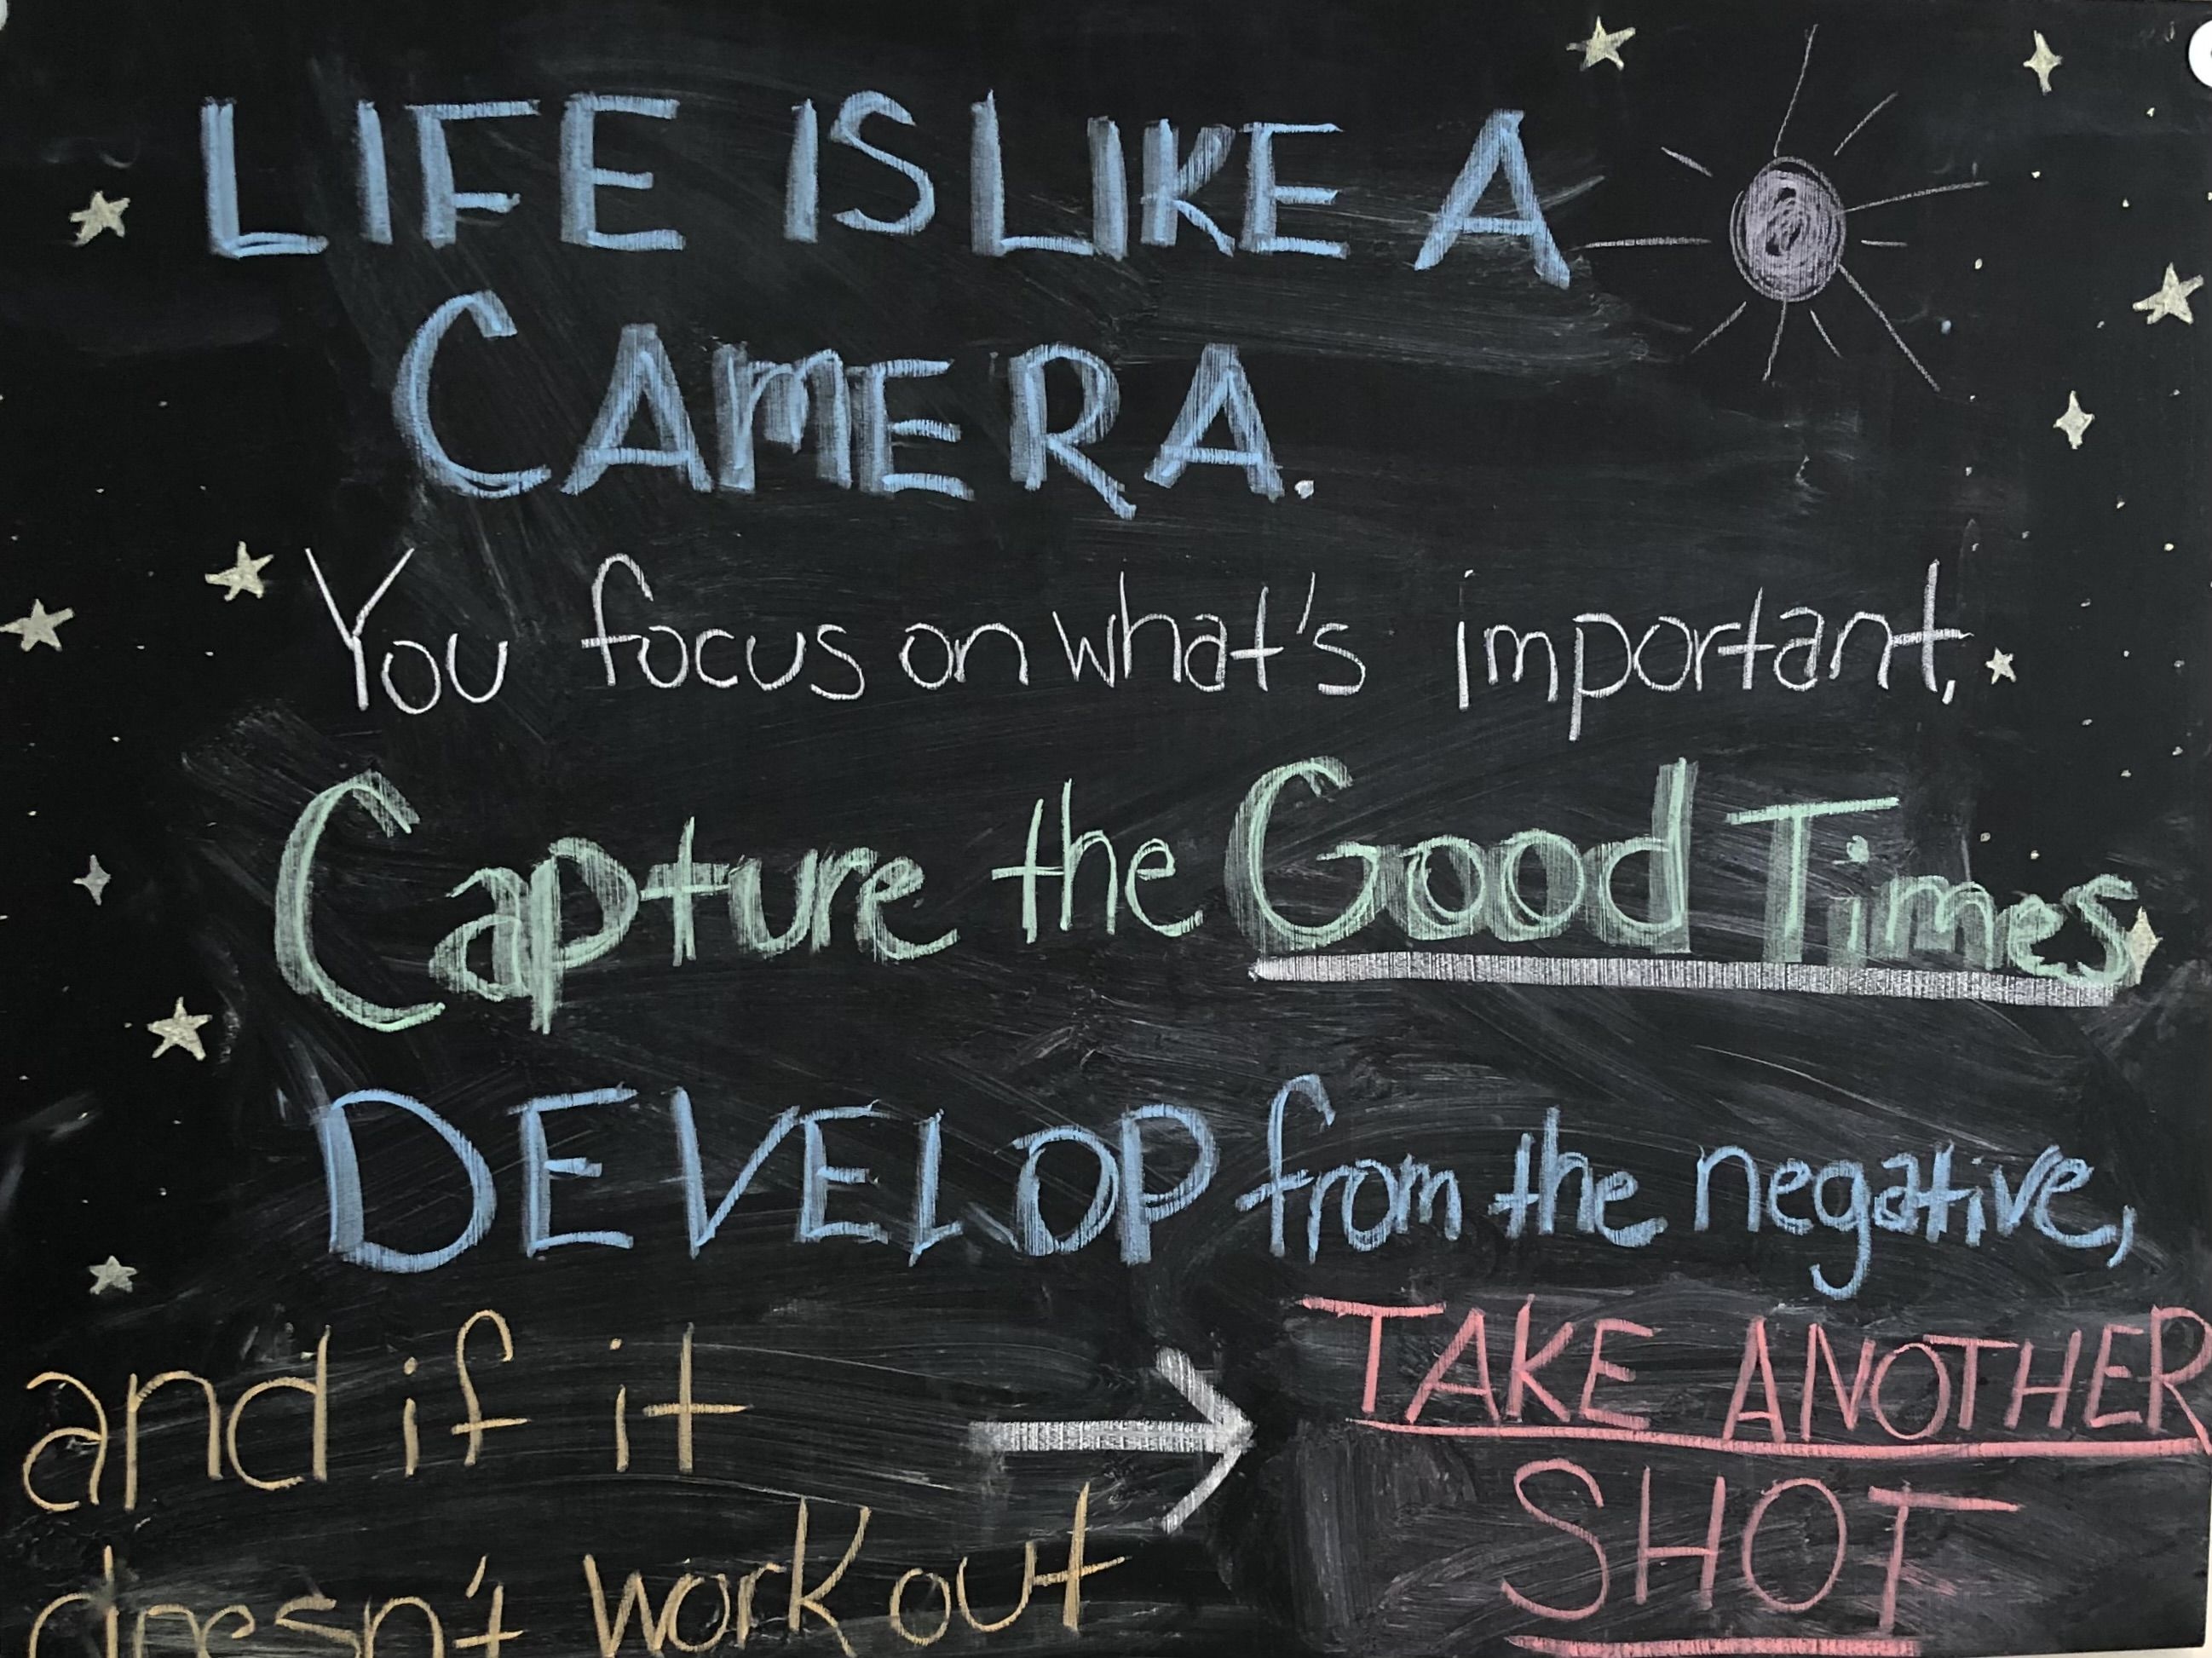 LIFE IS LIKE A
CAMERA.
You focus on what's important,
Capture the Good Times
DEVELOP from the negative,
and if it
doesn't work out
TAKE ANOTHER
SHOT